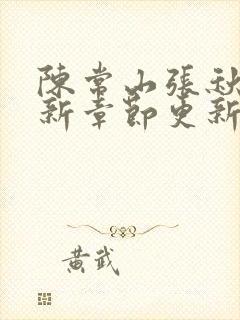 陳常山張秋
新章節更新
黃武